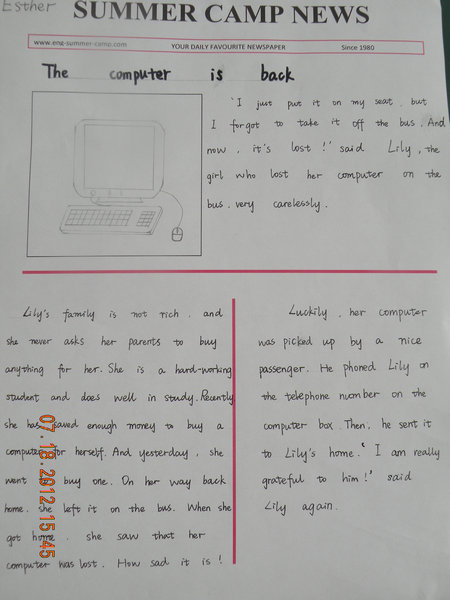 Esther
SUMMER CAMP NEWS
www.eng-summer-camp.com YOUR DAILY FAVOURITE NEWSPAPER Since 1980
The computer is back
'I just put it on my seat, but
I forgot to take it off the bus. And
now, it's lost!' said Lily, the
girl who lost her computer on the
bus, very carelessly.
Lily's family is not rich, and
she never asks her parents to buy
anything for her. She is a hard-working
student and does well in study. Recently
she has saved enough money to buy a
computer for herself. And yesterday, she
went to buy one. On her way back
home, she left it on the bus. When she
got home, she saw that her
computer was lost. How sad it is!
Luckily, her computer
was picked up by a nice
passenger. He phoned Lily on
the telephone number on the
computer box. Then, he sent it
to Lily's home. 'I am really
grateful to him!' said
Lily again.
07.18.2012 15:45